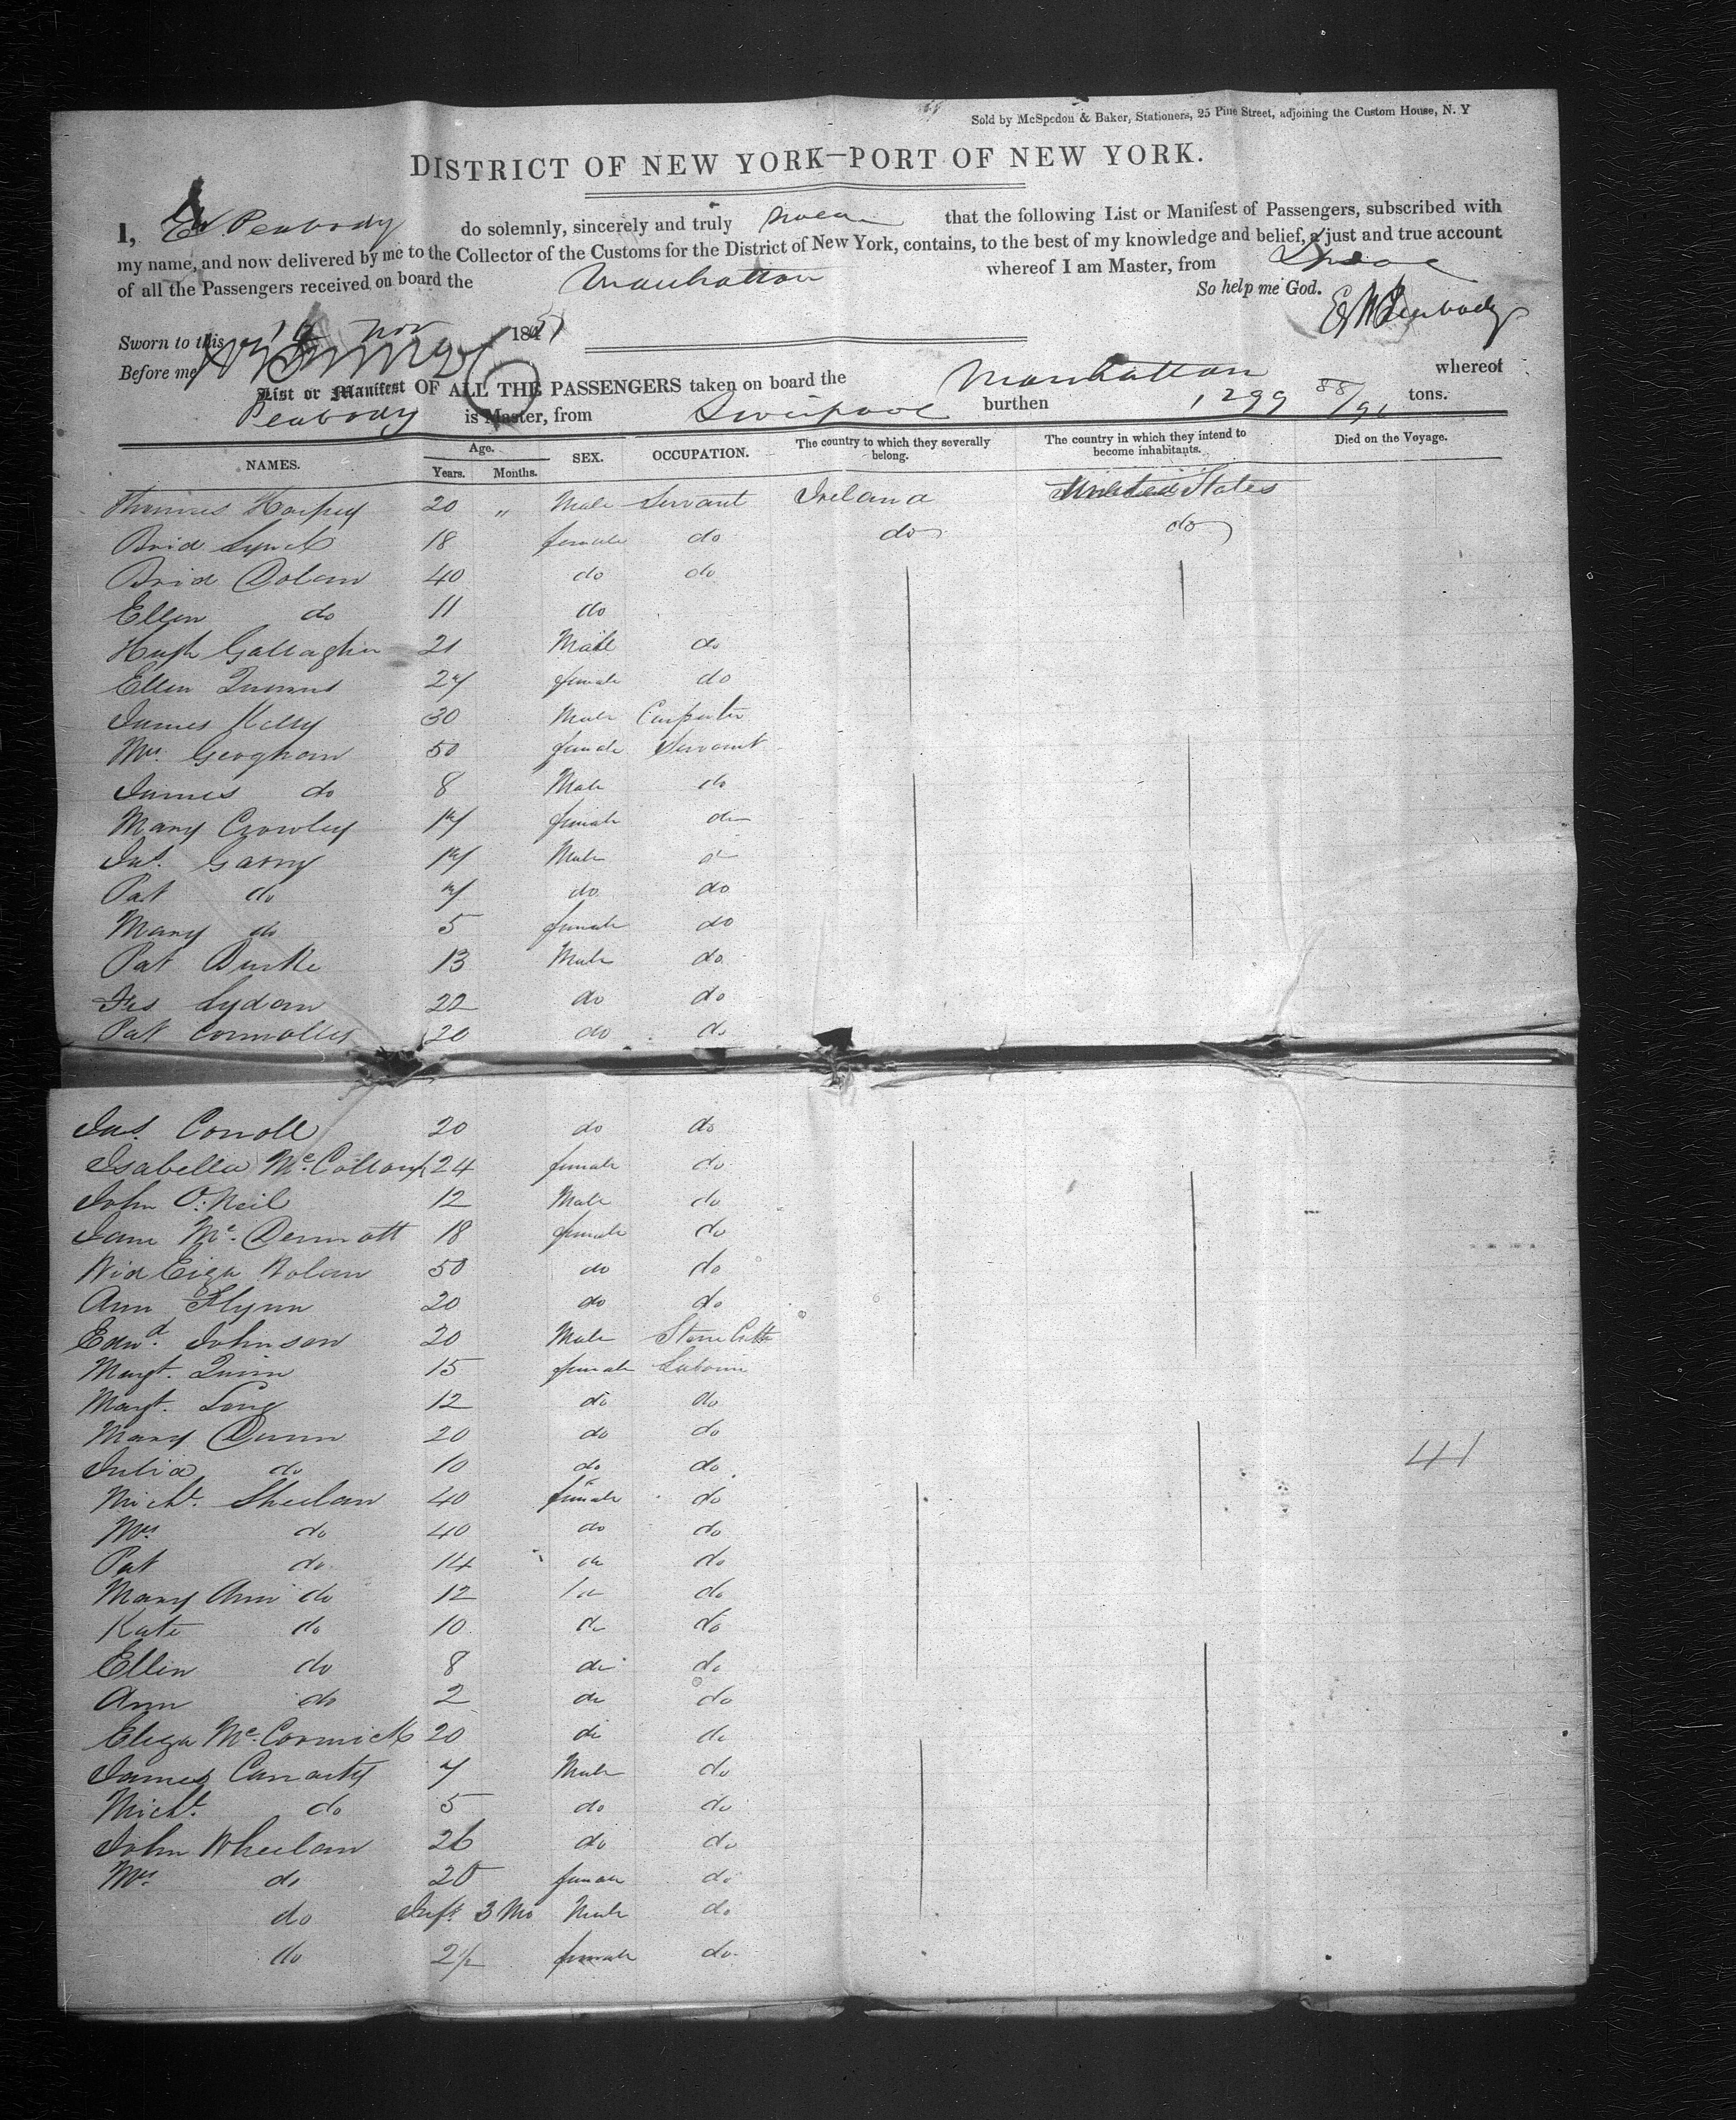 Sold by McSpedon & Baker, Stationers, 25 Pine Street, adjoining the Custom House, N. Y
DISTRICT OF NEW YORK—PORT OF NEW YORK.
I, E W Peabody do solemnly, sincerely and truly swear that the following List or Manifest of Passengers, subscribed with
my name, and now delivered by me to the Collector of the Customs for the District of New York, contains, to the best of my knowledge and belief, a just and true account
of all the Passengers received on board the Manhattan whereof I am Master, from
So help me God.
E W Peabody
Sworn to this Nov 1851
Before me
List or Manifest OF ALL THE PASSENGERS taken on board the Manhattan whereof
Peabody is Master, from Liverpool burthen 1299 88/95 tons.
NAMES. Age. Years. Months. SEX. OCCUPATION. The country to which they severally belong. The country in which they intend to become inhabitants. Died on the Voyage.
Thomas Harpey 20 " Male Servant Ireland United States
Brid Lynch 18 female do do do
Brid Dolan 40 do do
Ellen do 11 do
Hugh Gallagher 21 Male do
Ellen 27 female do
James Kelly 30 Male Carpenter
Mrs. Geoghan 50 female Servant
James do 8 Male do
Mary Crowley 17 female do
Jas. Garry 17 Male do
Pat do 7 do do
Mary do 5 female do
Pat Burke 13 Male do
Lydan 22 do do
Pat Connolley 20 do do
Jas. Conoll 20 do do
Isabella McCollough 24 female do
John O'Neil 12 Male do
Jane McDermott 18 female do
Wid Eliza Nolan 50 do do
Ann Flynn 20 do do
Edwd. Johnson 20 Male Stone Cutter
Margt. Quinn 15 female Laborer
Margt. Long 12 do do
Mary Dunn 20 do do
Julia do 10 do do
41
Michl. Sheelan 40 female do
Mrs do 40 do do
Pat do 14 do do
Mary Ann do 12 do do
Kate do 10 do do
Ellen do 8 do do
Ann do 2 do do
Eliza McCormick 20 do do
James Canarty 7 Male do
Michl. do 5 do do
John Wheelan 26 do do
Mrs. do 20 female do
do Inft 3 Mo Male do
do 2½ female do